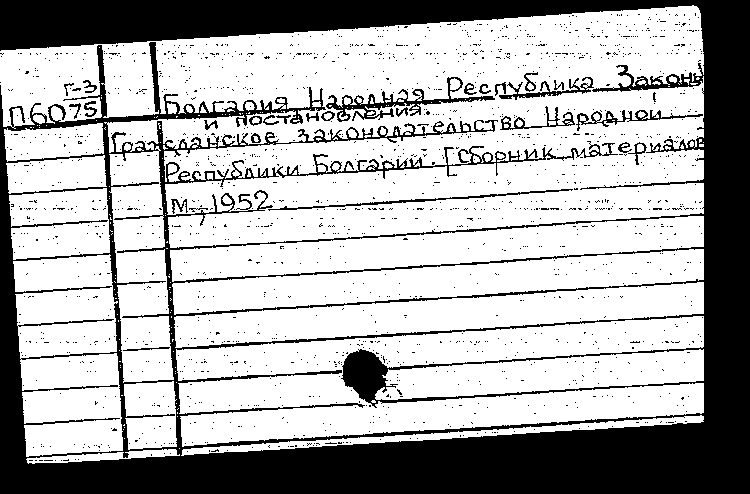 Г-3
П6075
Болгария Народная Республика. Законы
и постановления.
Гражданское законодательство Народной
Республики Болгарии. [Сборник материалов
М., 1952